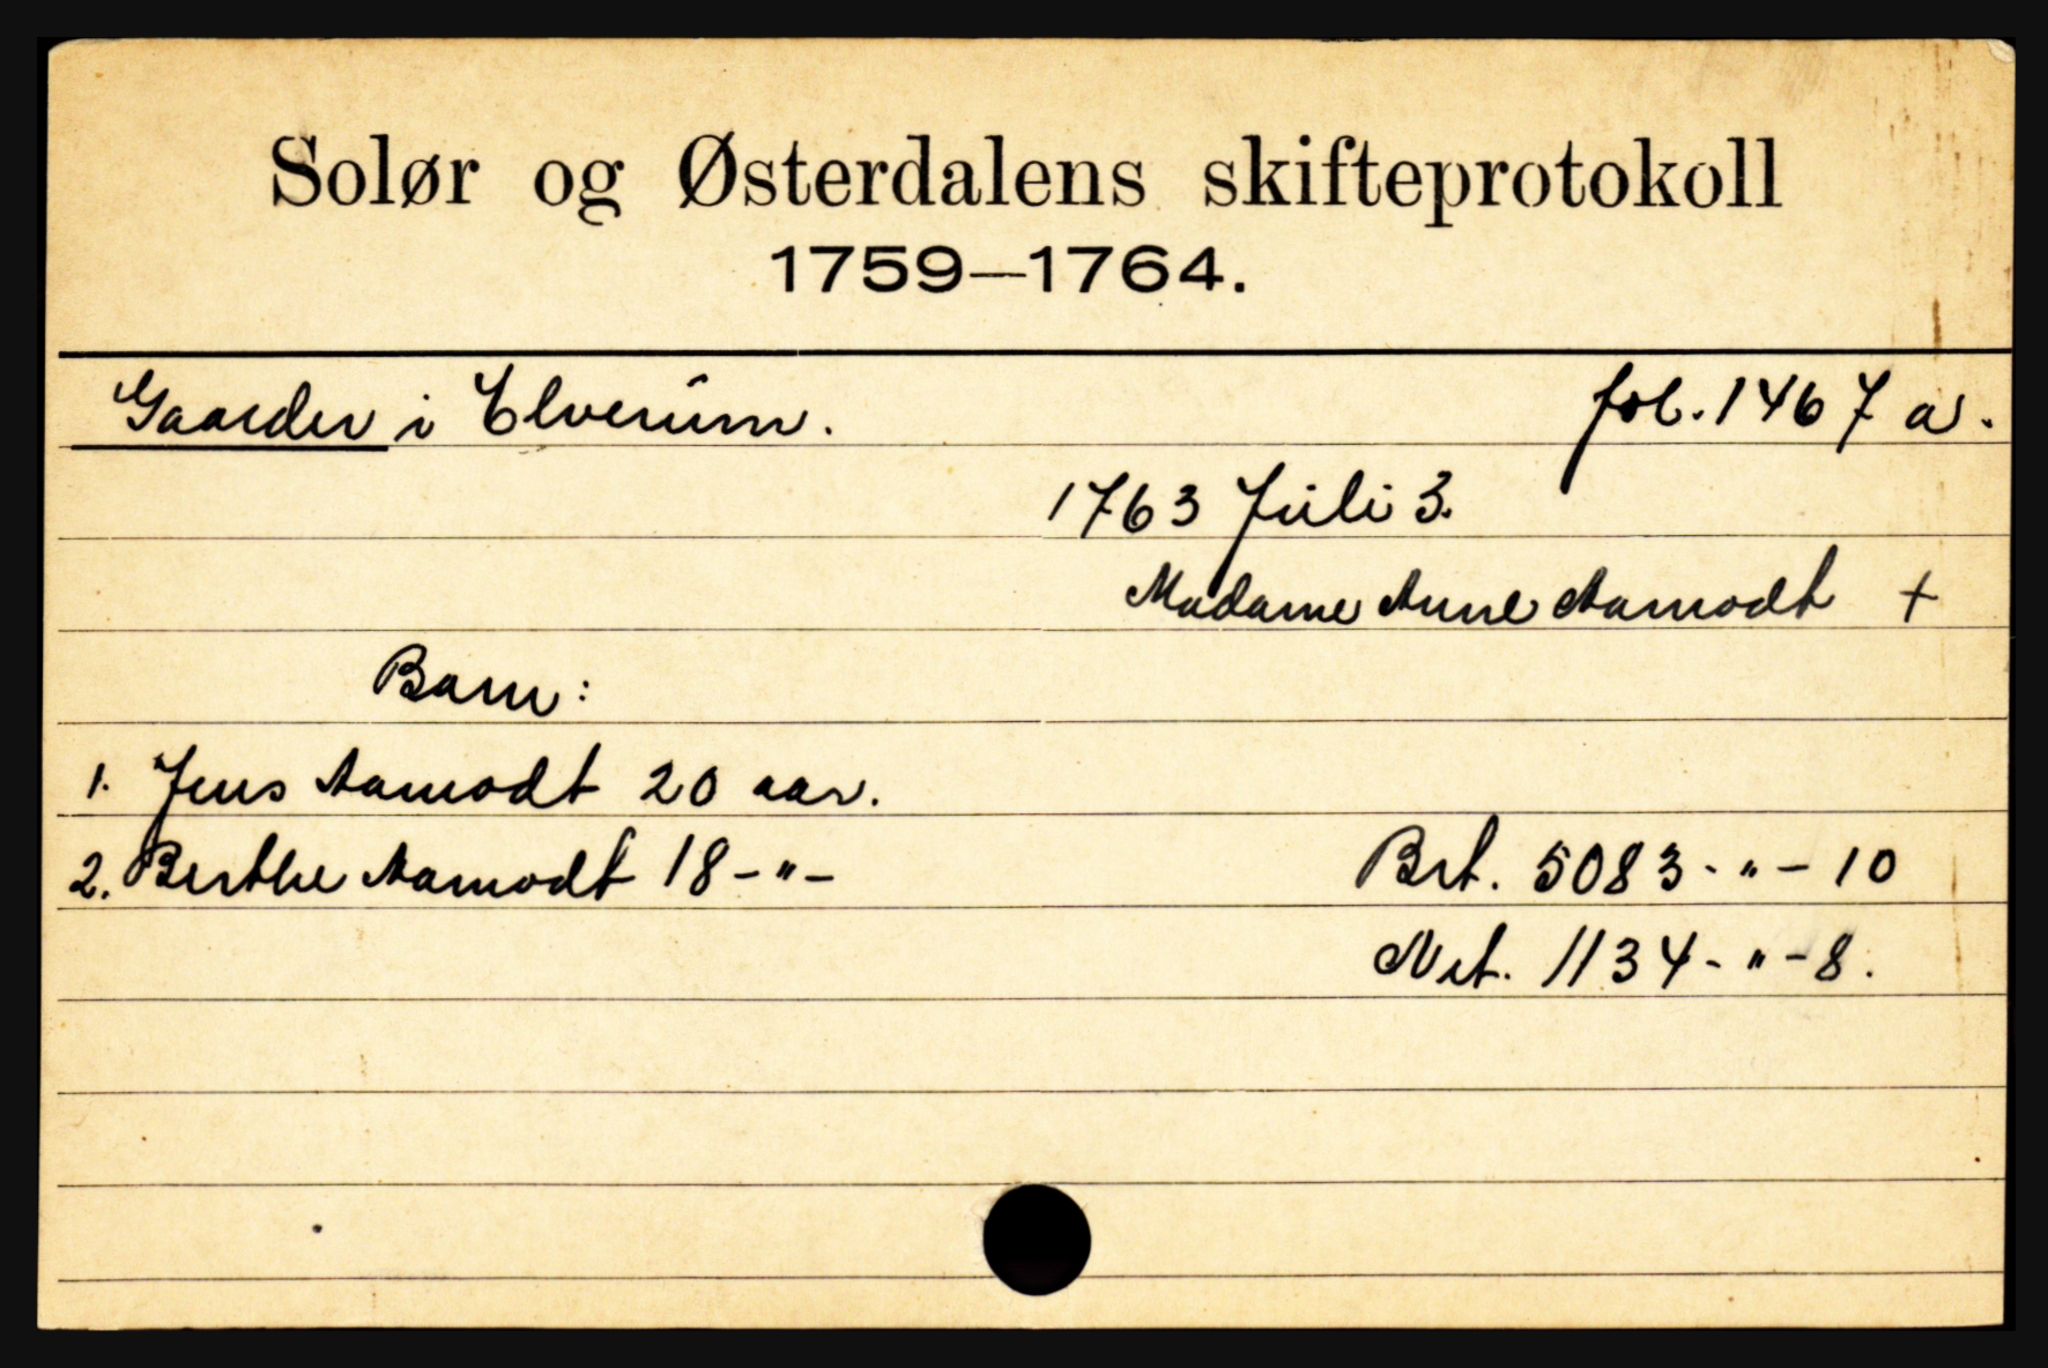 Solør og Østerdalens skifteprotokoll
1759—1764.
Gaarder i Elverum. fol. 1467 a.
1763 Juli 3.
Madame Anne Aamodt +
Barn:
1. Jens Aamodt 20 aar.
2. Berthe Aamodt 18 - " - Brt. 5083 - " - 10
Net. 1134 - " - 8.